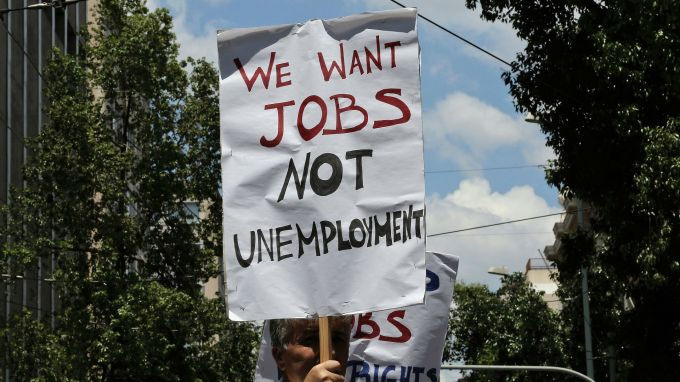 WE WANT
JOBS
NOT
UNEMPLOYMENT
RIGHTS